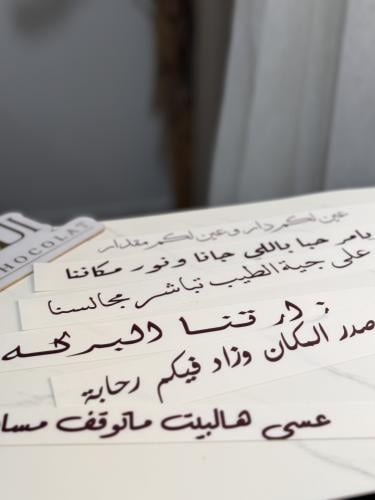 عين لكم دار وعين لكم مقدار
يامر حبا باللي جانا ونور مكاننا
على جية الطيب تباشر مجالسنا
زارتنا البركه
صدر المكان وزاد فيكم رحابة
عسى هالبيت ماتوقف مسا
CHOCOLAT